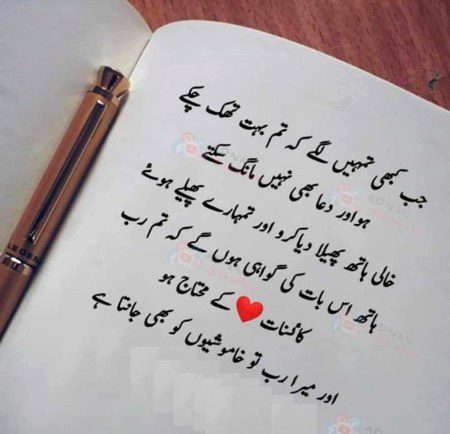 جب کبھی تمہیں لگے کہ تم بہت تھک چکے
ہو اور دعا بھی نہیں مانگ سکتے
خالی ہاتھ پھیلا دیا کرو اور تمہارے پھیلے ہوئے
ہاتھ اس بات کی گواہی ہوں گے کہ تم رب
کائنات ❤ کے محتاج ہو
اور میرا رب تو خاموشیوں کو بھی جانتا ہے
LEGEND